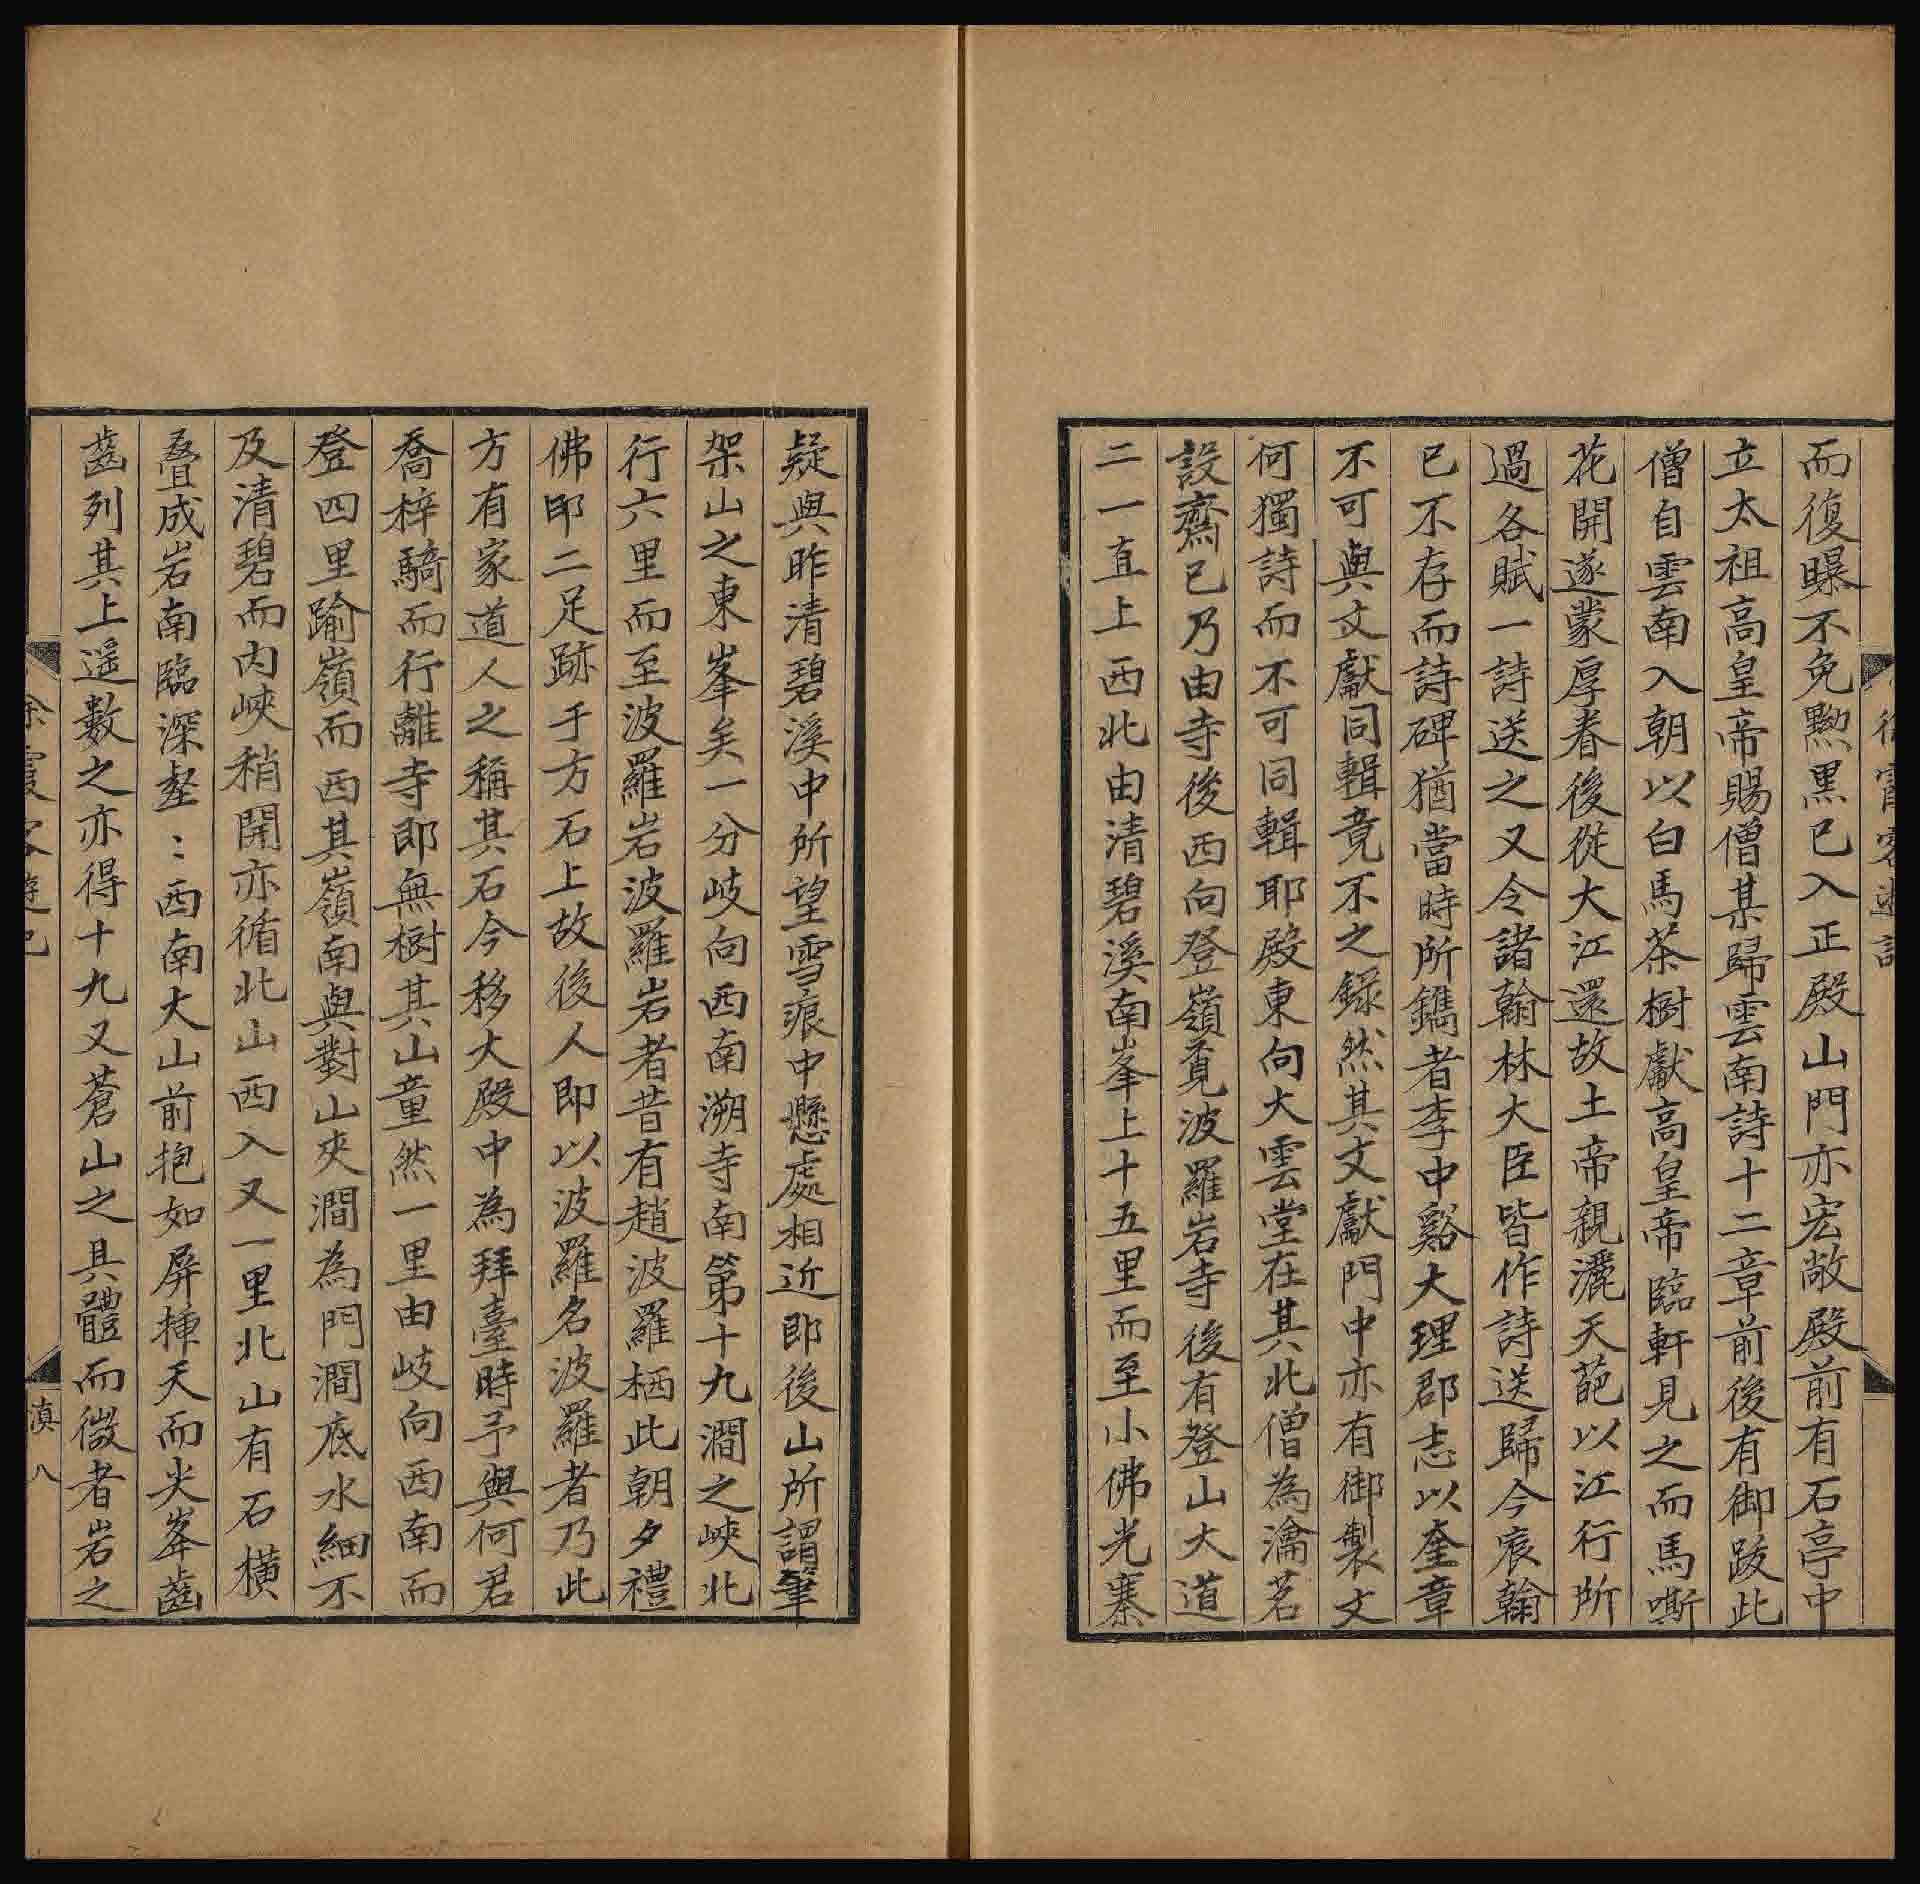 徐霞客遊記
而復曝不免黝黑已入正殿山門亦宏敞殿前有石亭中
立太祖高皇帝賜僧某歸雲南詩十二章前後有御跋此
僧自雲南入朝以白馬茶樹獻高皇帝臨軒見之而馬嘶
花開遂蒙厚眷後從大江還故土帝親灑天葩以江行所
過各賦一詩送之又令諸翰林大臣皆作詩送歸今宸翰
已不存而詩碑猶當時所鐫者李中谿大理郡志以奎章
不可與文獻同輯竟不之錄然其文獻門中亦有御製文
何獨詩而不可同輯耶殿東向大雲堂在其北僧為瀹茗
設齋已乃由寺後西向登嶺覓波羅岩寺後有登山大道
二一直上西北由清碧溪南峯上十五里而至小佛光寨
疑與昨清碧溪中所望雪痕中懸處相近即後山所謂筆
架山之東峯矣一分岐向西南溯寺南第十九澗之峽北
行六里而至波羅岩波羅岩者昔有趙波羅栖此朝夕禮
佛卬二足跡于方石上故後人即以波羅名波羅者乃此
方有家道人之稱其石今移大殿中為拜臺時予與何君
喬梓騎而行離寺即無樹其山童然一里由岐向西南而
登四里踰嶺而西其嶺南與對山夾澗為門澗底水細不
及清碧而內峽稍開亦循北山西入又一里北山有石橫
疊成岩南臨深壑：西南大山前抱如屏揷天而尖峯齒
齒列其上遥數之亦得十九又蒼山之具體而微者岩之
徐霞客遊記
滇八